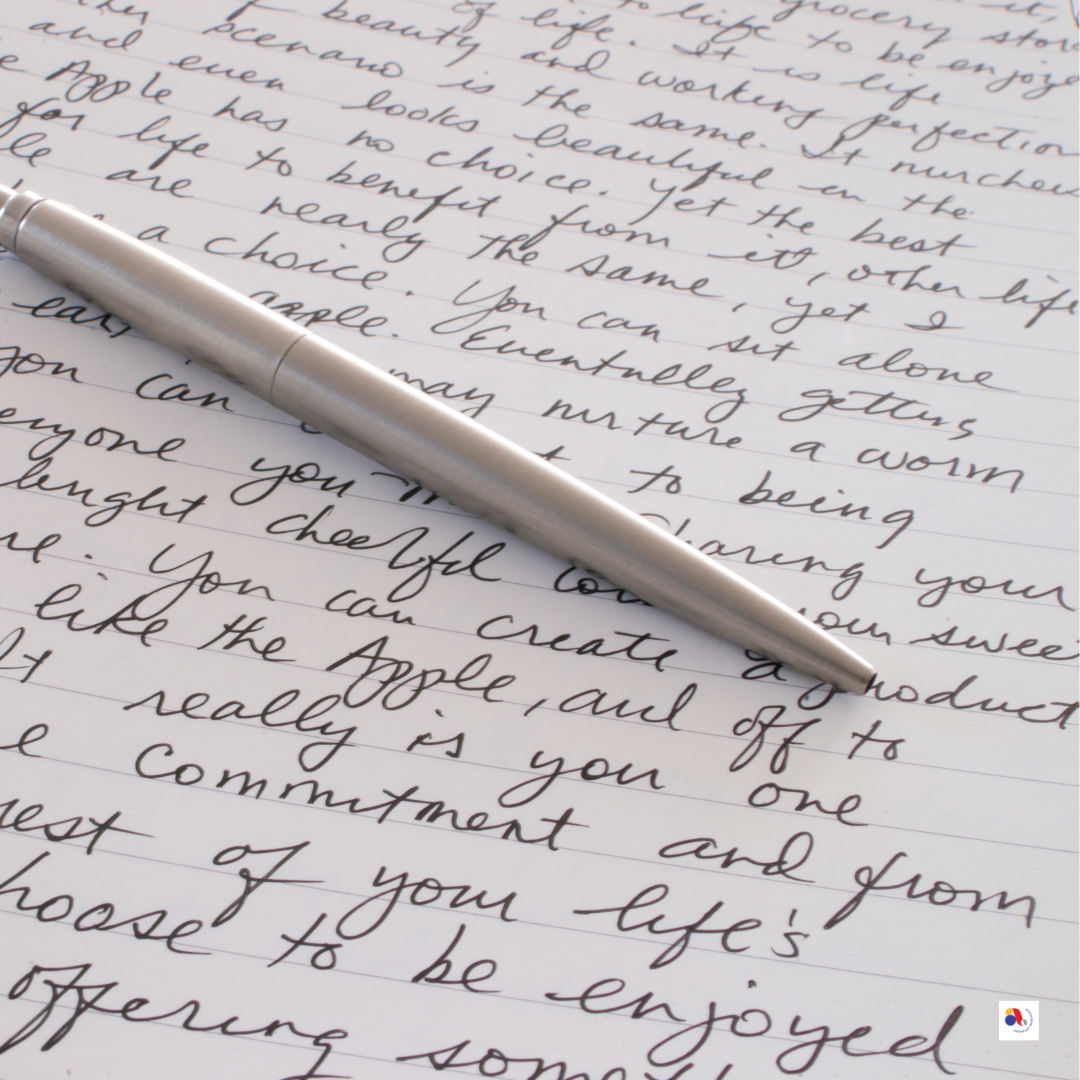 it,
grocery store
to life to be enjoyed
of life. It is life
of beauty and working perfection
scenario is the same. It
and even looks beautiful in the
Apple has no choice. Yet the best
for life to benefit from it, other life
are nearly the same, yet I
a choice. You can sit alone
apple. Eventually getting
eat may nurture a worm
you can to being
everyone you Sharing your
bright cheerful your sweet
You can create a product
like the Apple, and off to
really is you one
commitment and from
of your life's
to be enjoyed
offering